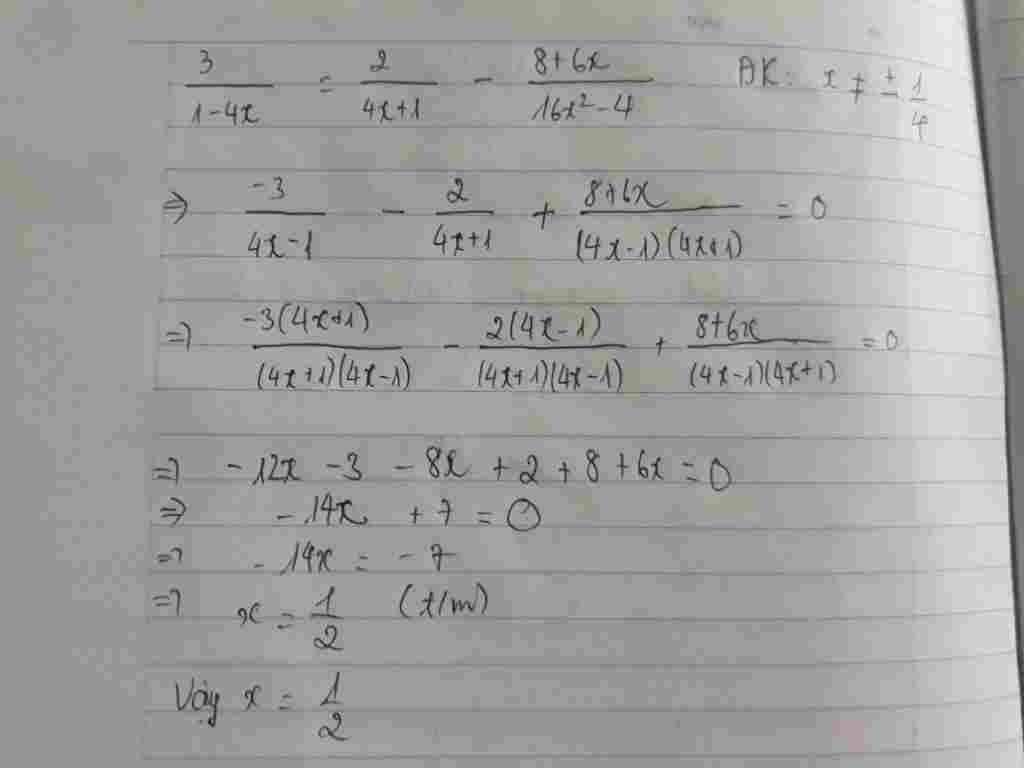 3/(1-4x) = 2/(4x+1) - (8+6x)/(16x²-4) ĐK: x ≠ ± 1/4
=> -3/(4x-1) - 2/(4x+1) + (8+6x)/((4x-1)(4x+1)) = 0
=> -3(4x+1)/((4x+1)(4x-1)) - 2(4x-1)/((4x+1)(4x-1)) + (8+6x)/((4x-1)(4x+1)) = 0
=> -12x - 3 - 8x + 2 + 8 + 6x = 0
=> -14x + 7 = 0
=> -14x = -7
=> x = 1/2 (t/m)
Vậy x = 1/2